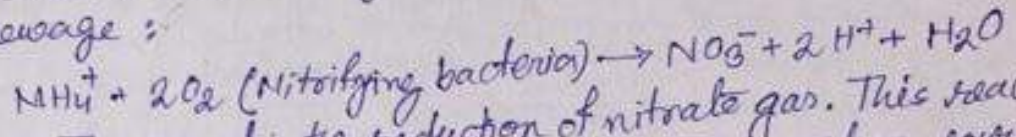 ewage :
NH4+ + 2O2 (Nitrifying bacteria) → NO3- + 2H+ + H2O
reduction of nitrate gas. This reac